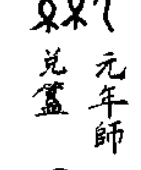 元年師
兌簋